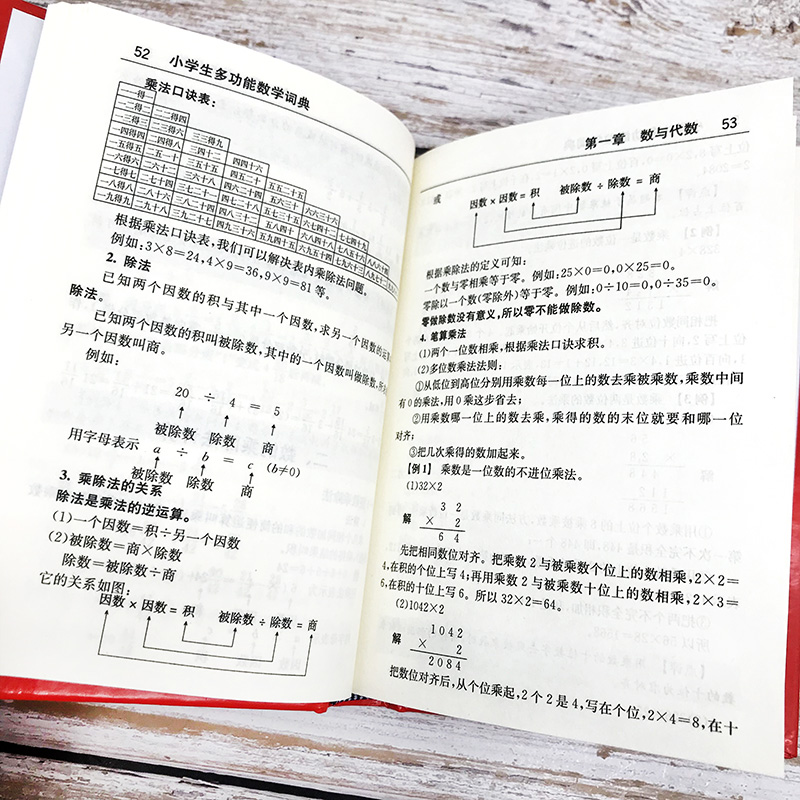 52 小学生多功能数学词典
乘法口诀表：
一一得一
一二得二 二二得四
一三得三 二三得六 三三得九
一四得四 二四得八 三四十二 四四十六
一五得五 二五一十 三五十五 四五二十 五五二十五
一六得六 二六十二 三六十八 四六二十四 五六三十 六六三十六
一七得七 二七十四 三七二十一 四七二十八 五七三十五 六七四十二 七七四十九
一八得八 二八十六 三八二十四 四八三十二 五八四十 六八四十八 七八五十六 八八六十四
一九得九 二九十八 三九二十七 四九三十六 五九四十五 六九五十四 七九六十三 八九七十二
根据乘法口诀表，我们可以解决表内乘除法问题。
例如：3×8=24，4×9=36，9×9=81等。
2. 除法
已知两个因数的积与其中一个因数，求另一个因数的
除法。
已知两个因数的积叫被除数，其中的一个因数叫做除数，
另一个因数叫商。
例如：
20 ÷ 4 = 5
被除数 除数 商
用字母表示 a ÷ b = c (b≠0)
被除数 除数 商
3. 乘除法的关系
除法是乘法的逆运算。
(1)一个因数=积÷另一个因数
(2)被除数=商×除数
除数=被除数÷商
它的关系如图：
因数×因数=积 被除数÷除数=商
第一章 数与代数 53
或
因数×因数=积 被除数÷除数=商
根据乘除法的定义可知：
一个数与零相乘等于零。例如：25×0=0，0×25=0。
零除以一个数(零除外)等于零。例如：0÷10=0，0÷35=0。
零做除数没有意义，所以零不能做除数。
4. 笔算乘法
(1)两个一位数相乘，根据乘法口诀求积。
(2)多位数乘法法则：
①从低位到高位分别用乘数每一位上的数去乘被乘数，乘数中间
有0的乘法，用0乘这步省去；
②用乘数哪一位上的数去乘，乘得的数的末位就要和哪一位
对齐；
③把几次乘得的数加起来。
【例1】 乘数是一位数的不进位乘法。
(1)32×2
3 2
解 × 2
6 4
先把相同数位对齐。把乘数2与被乘数个位上的数相乘，2×2=
4，在积的个位上写4；再用乘数2与被乘数十位上的数相乘，2×3=
6，在积的十位上写6。所以32×2=64。
(2)1042×2
1042
解 × 2
2084
把数位对齐后，从个位乘起，2个2是4，写在个位，2×4=8，在十